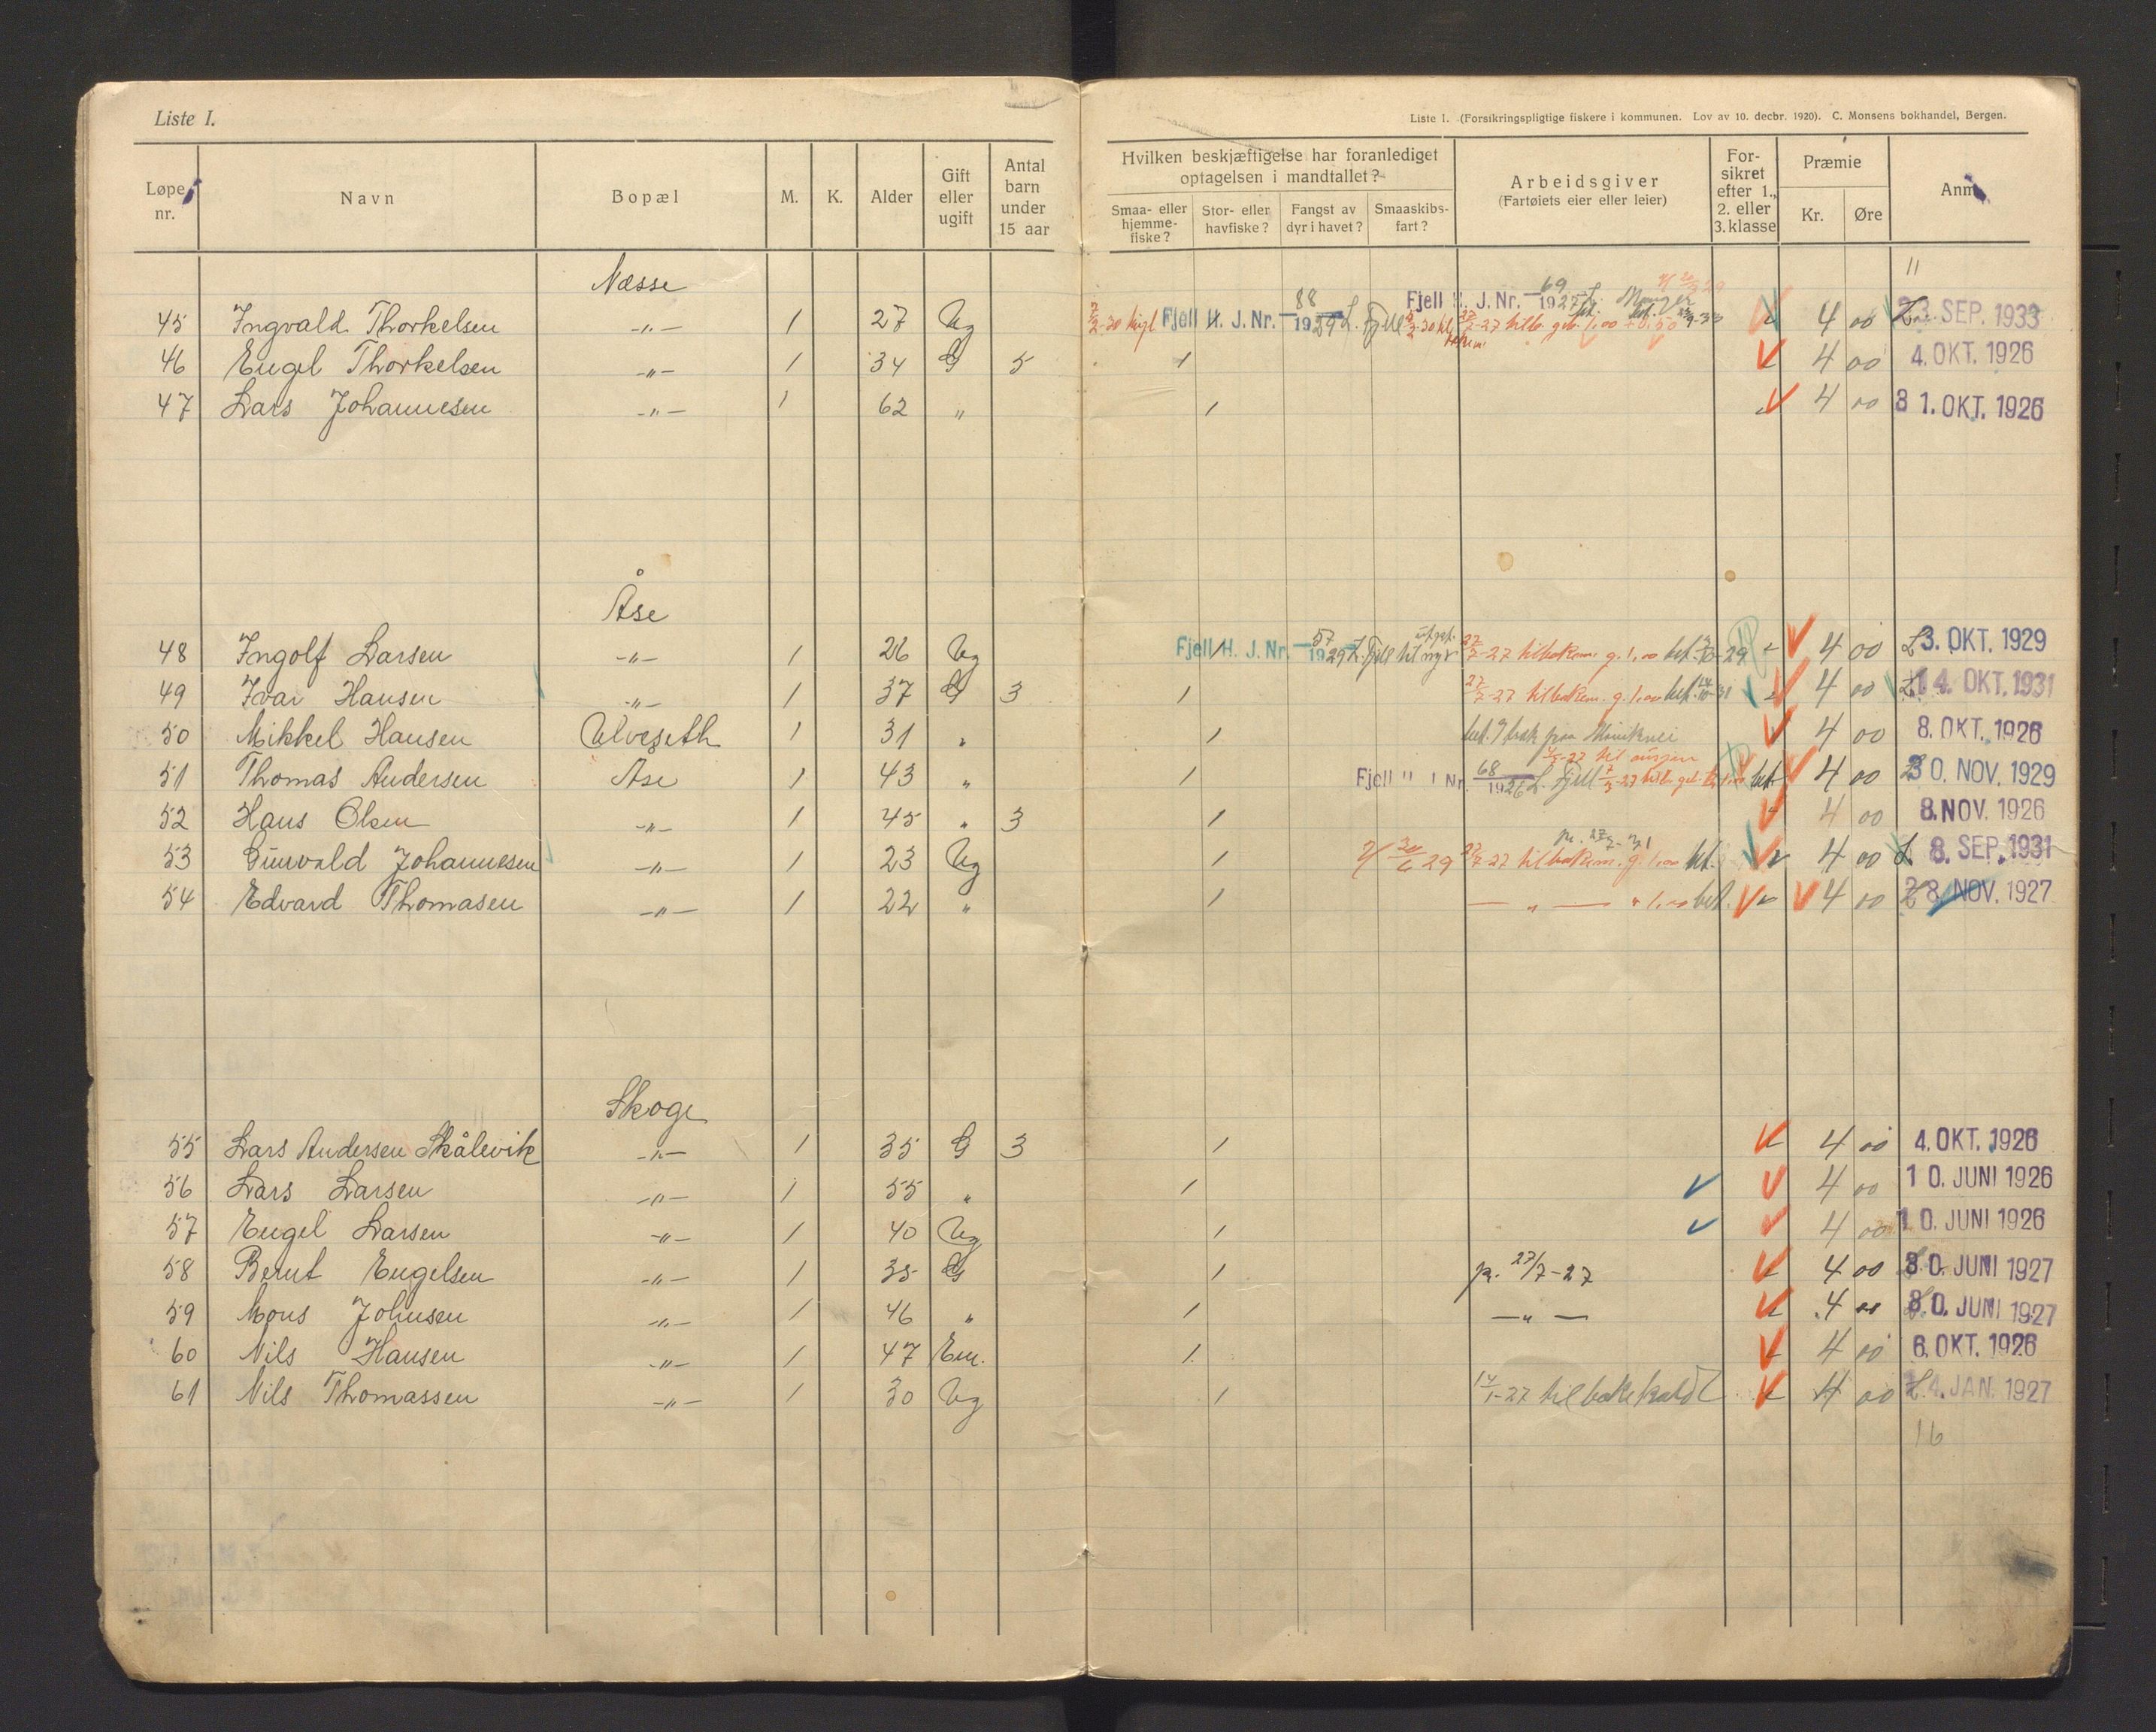 Liste I.
Liste 1. (Forsikringspligtige fiskere i kommunen. Lov av 10. decbr. 1920). C. Monsens bokhandel, Bergen.
Løpe nr. Navn Bopæl M. K. Alder Gift eller ugift Antal barn under 15 aar Hvilken beskjæftigelse har foranlediget optagelsen i mandtallet? Smaa- eller hjemme-fiske? Stor- eller havfiske? Fangst av dyr i havet? Smaaskibs-fart? Arbeidsgiver (Fartøiets eier eller leier) For-sikret efter 1., 2. eller 3. klasse Præmie Kr. Øre Anm.
Næsse 11
Fjell H. J. Nr. 69 1927 L. Manger
45 Ingvald Thorkelsen -"- 1 27 Ug Fjell H. J. Nr. 88 1929 L. Fjell 27/7-27 tilb. geb. 1,00 + 0,50 4 00 23. SEP. 1933
46 Engel Thorkelsen -"- 1 34 G 5 1 4 00 4. OKT. 1926
47 Lars Johannesen -"- 1 62 " 1 4 00 31. OKT. 1926
Åse
48 Ingolf Larsen -"- 1 26 Ug 1 Fjell H. J. Nr. 57 1929 L. Fjell til 27/7-27 tilbakem. g. 1,00 bet. 3/10-29 4 00 3. OKT. 1929
49 Ivar Hansen -"- 1 37 G 3 1 27/7-27 tilbakem. g. 1,00 bet. 14/10-31 4 00 14. OKT. 1931
50 Mikkel Hansen Ulveseth 1 31 " 1 4 00 8. OKT. 1926
51 Thomas Andersen Åse 1 43 " 1 Fjell H. J. Nr. 68 1926 L. Fjell bet. 4 00 30. NOV. 1929
52 Hans Olsen -"- 1 45 " 3 1 4 00 8. NOV. 1926
53 Gunvald Johannesen -"- 1 23 Ug 1 20/6 29 27/7-27 tilbakem. g. 1,00 bet. 4 00 8. SEP. 1931
54 Edvard Thomasen -"- 1 22 " 1 — " — " 1,00 bet. 4 00 28. NOV. 1927
Skoge
55 Lars Andersen Skålevik -"- 1 35 G 3 1 4 00 4. OKT. 1926
56 Lars Larsen -"- 1 55 " 1 4 00 10. JUNI 1926
57 Engel Larsen -"- 1 40 Ug 1 4 00 10. JUNI 1926
58 Bernt Engelsen -"- 1 35 G 1 p. 27/7-27 4 00 30. JUNI 1927
59 Mons Johnsen -"- 1 46 " 1 -"- 4 00 30. JUNI 1927
60 Nils Hansen -"- 1 47 Em. 1 4 00 6. OKT. 1926
61 Nils Thomassen -"- 1 30 Ug 1 14/1-27 tilbakekaldt 4 00 4. JAN. 1927
16